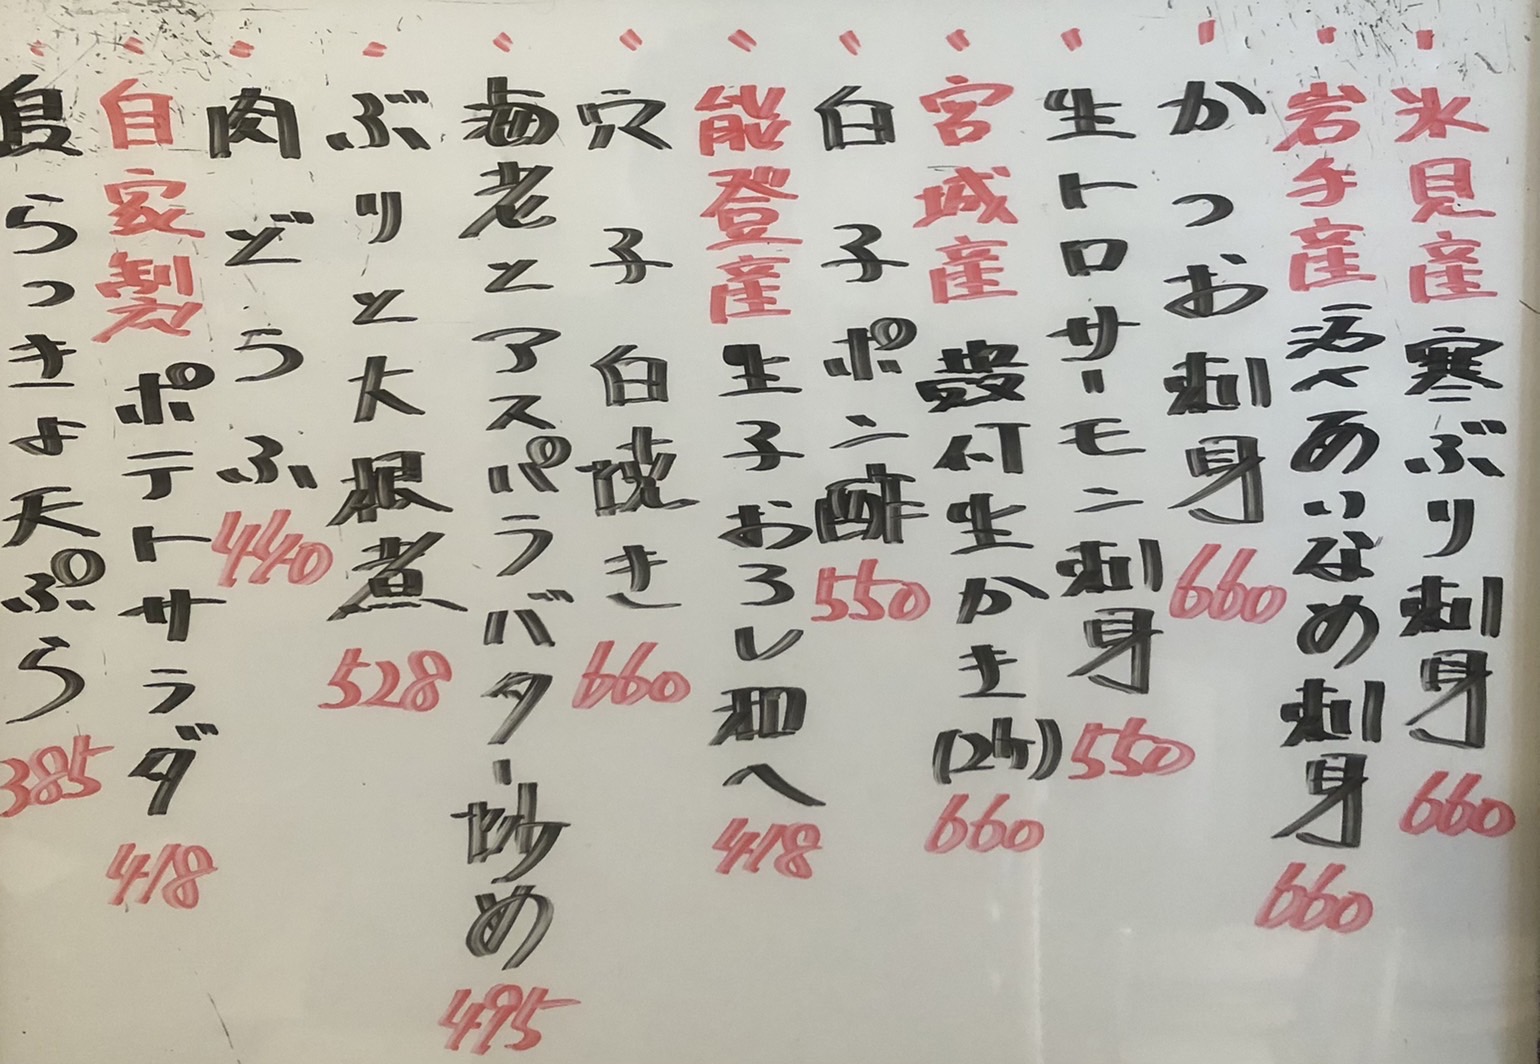 氷見産寒ぶり刺身 660
岩手産活〆あいなめ刺身 660
かつお刺身 660
生トロサーモン刺身 550
宮城産殻付生かき(2ケ) 660
白子ポン酢 550
能登産生子おろし和へ 418
穴子白焼き 660
海老とアスパラバター炒め 495
ぶりと大根煮 528
肉どうふ 440
自家製ポテトサラダ 418
島らっきょ天ぷら 385